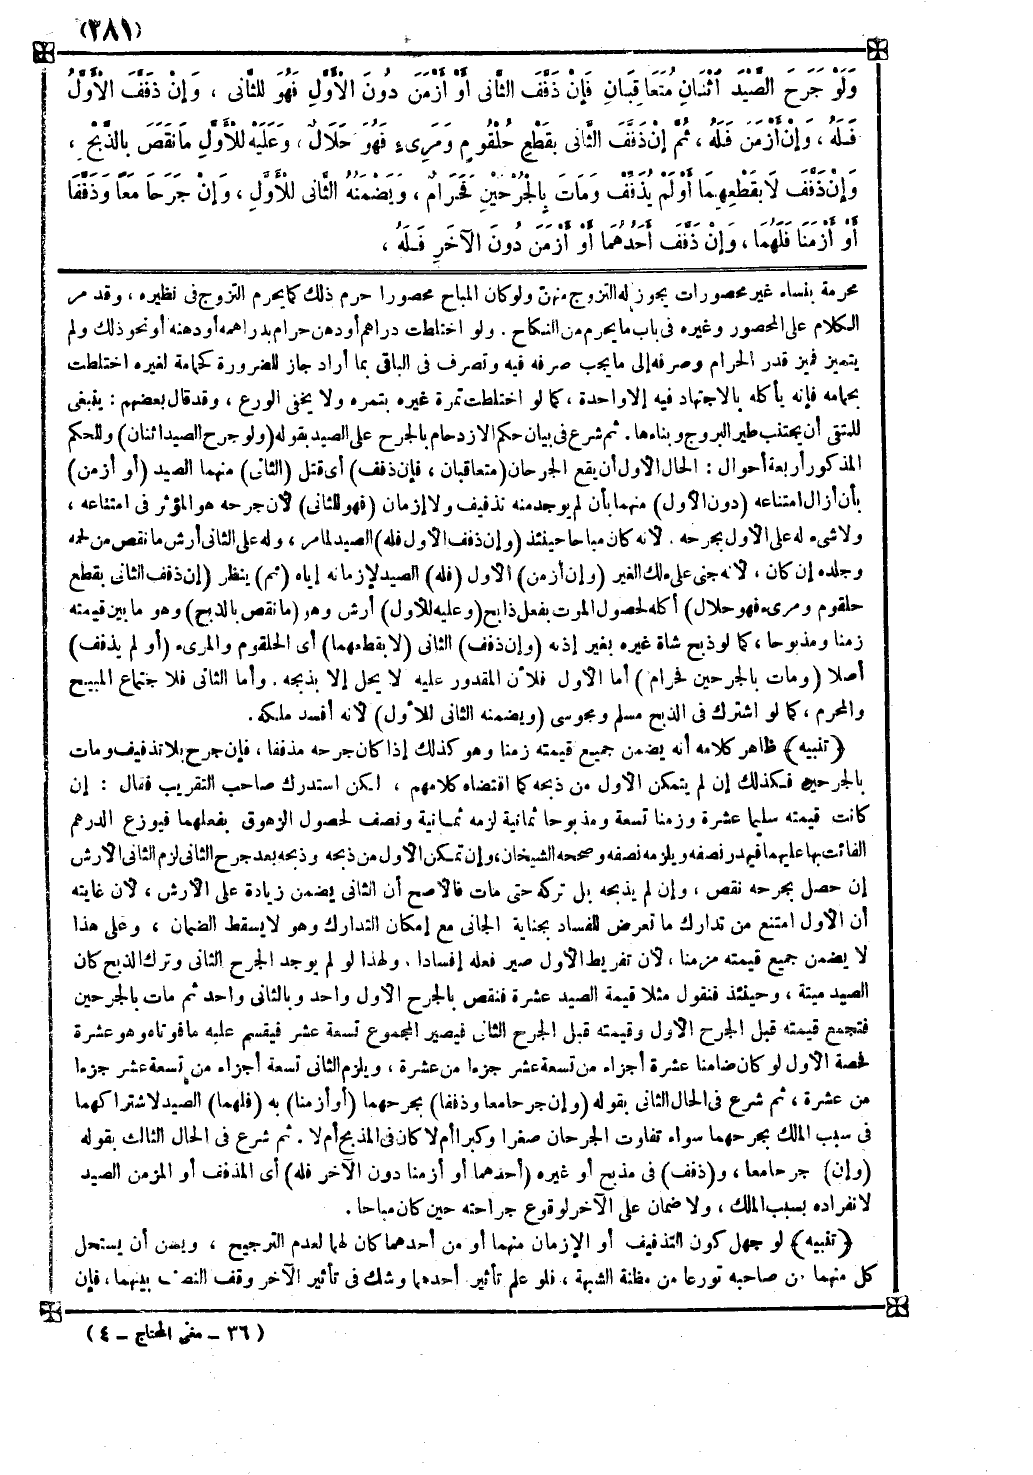 (٢٨١)
وَلَوْ جَرَحَ الصَّيْدَ اثْنَانِ مُتَعَاقِبَانِ فَإِنْ ذَفَّفَ الثَّانِى أَوْ أَزْمَنَ دُونَ الْأَوَّلِ فَهُوَ لِلثَّانِى ، وَإِنْ ذَفَّفَ الْأَوَّلُ
فَلَهُ ، وَإِنْ أَزْمَنَ فَلَهُ ، ثُمَّ إِنْ ذَفَّفَ الثَّانِى بِقَطْعِ حُلْقُومٍ وَمَرِىءٍ فَهُوَ حَلَالٌ ، وَعَلَيْهِ لِلْأَوَّلِ مَا نَقَصَ بِالذَّبْحِ ،
وَإِنْ ذَفَّفَ لَا بِقَطْعِهِمَا أَوْ لَمْ يُذَفِّفْ وَمَاتَ بِالْجُرْحَيْنِ فَحَرَامٌ ، وَيَضْمَنُهُ الثَّانِى لِلْأَوَّلِ ، وَإِنْ جَرَحَا مَعًا وَذَفَّفَا
أَوْ أَزْمَنَا فَلَهُمَا ، وَإِنْ ذَفَّفَ أَحَدُهُمَا أَوْ أَزْمَنَ دُونَ الْآخَرِ فَلَهُ ،
محرمة بنساء غير محصورات يجوز له التزوج منهن ولو كان المباح محصورا حرم ذلك كما يحرم التزوج فى نظيره ، وقد مر
الكلام على المحصور وغيره فى باب ما يحرم من النكاح . ولو اختلطت دراهم أو دهن حرام بدراهمه أو دهنه أو نحو ذلك ولم
يتميز فميز قدر الحرام وصرفه إلى ما يجب صرفه فيه وتصرف فى الباقى بما أراد جاز للضرورة كحمامة لغيره اختلطت
بحمامه فإنه يأكله بالاجتهاد فيه إلا واحدة ، كما لو اختلطت تمرة غيره بتمره ولا يخفى الورع ، وقد قال بعضهم : ينبغى
للمتقى أن يجتنب طير البروج وبناءها . ثم شرع فى بيان حكم الازدحام بالجرح على الصيد بقوله (ولو جرح الصيد اثنان) وللحكم
المذكور أربعة أحوال : الحال الأول أن يقع الجرحان (متعاقبان ، فإن ذفف) أى قتل (الثانى) منهما الصيد (أو أزمن)
بأن أزال امتناعه (دون الأول) منهما بأن لم يوجد منه تذفيف ولا إزمان (فهو للثانى) لأن جرحه هو المؤثر فى امتناعه ،
ولا شىء له على الأول بجرحه . لأنه كان مباحا حينئذ (وإن ذفف الأول فله) الصيد لما مر ، وله على الثانى أرش ما نقص من لحمه
وجلده إن كان ، لأنه جنى على ملك الغير (وإن أزمن) الأول (فله) الصيد لإزمانه إياه (ثم) ينظر (إن ذفف الثانى بقطع
حلقوم ومرىء فهو حلال) أكله لحصول الموت بفعل ذابح (وعليه للأول) أرش وهو (ما نقص بالذبح) وهو ما بين قيمته
زمنا ومذبوحا ، كما لو ذبح شاة غيره بغير إذنه (وإن ذفف) الثانى (لا بقطعهما) أى الحلقوم والمرىء (أو لم يذفف)
أصلا (ومات بالجرحين فحرام) أما الأول فلأن المقدور عليه لا يحل إلا بذبحه . وأما الثانى فلاجتماع المبيح
والمحرم ، كما لو اشترك فى الذبح مسلم ومجوسى (ويضمنه الثانى للأول) لأنه أفسد ملكه .
﴿تنبيه﴾ ظاهر كلامه أنه يضمن جميع قيمته زمنا وهو كذلك إذا كان جرحه مذففا ، فإن جرح بلا تذفيف ومات
بالجرحين فكذلك إن لم يتمكن الأول من ذبحه كما اقتضاه كلامهم ، لكن استدرك صاحب التقريب فقال : إن
كانت قيمته سليما عشرة وزمنا تسعة ومذبوحا ثمانية لزمه ثمانية ونصف لحصول الزهوق بفعلهما فيوزع الدرهم
الفائت بها عليهما فيهدر نصفه ويلزمه نصفه وصححه الشيخان ، وإن تمكن الأول من ذبحه وذبحه بعد جرح الثانى لزم الثانى الأرش
إن حصل بجرحه نقص ، وإن لم يذبحه بل تركه حتى مات فالأصح أن الثانى يضمن زيادة على الأرش ، لأن غايته
أن الأول امتنع من تدارك ما تعرض للفساد بجناية الجانى مع إمكان التدارك وهو لا يسقط الضمان ، وعلى هذا
لا يضمن جميع قيمته مزمنا ، لأن تفريط الأول صير فعله إفسادا . ولهذا لو لم يوجد الجرح الثانى وترك الذبح كان
الصيد ميتة ، وحينئذ فنقول مثلا قيمة الصيد عشرة فنقص بالجرح الأول واحد وبالثانى واحد ثم مات بالجرحين
فتجمع قيمته قبل الجرح الأول وقيمته قبل الجرح الثانى فيصير المجموع تسعة عشر فيقسم عليه ما فوتاه وهو عشرة
فحصة الأول لو كان ضامنا عشرة أجزاء من تسعة عشر جزءا من عشرة ، ويلزم الثانى تسعة أجزاء من تسعة عشر جزءا
من عشرة ، ثم شرع فى الحال الثانى بقوله (وإن جرحا معا وذففا) بجرحهما (أو أزمنا) به (فلهما) الصيد لاشتراكهما
فى سبب الملك بجرحهما سواء تفاوت الجرحان صغرا وكبرا أم لا كان فى المذبح أم لا . ثم شرع فى الحال الثالث بقوله
(وإن) جرحا معا ، و (ذفف) فى مذبح أو غيره (أحدهما أو أزمنا دون الآخر فله) أى المذفف أو المزمن الصيد
لانفراده بسبب الملك ، ولا ضمان على الآخر لوقوع جراحته حين كان مباحا .
﴿تنبيه﴾ لو جهل كون التذفيف أو الإزمان منهما أو من أحدهما كان لهما لعدم الترجيح ، ويسن أن يستحل
كل منهما من صاحبه تورعا من مظنة الشبهة ، فلو علم تأثير أحدهما وشك فى تأثير الآخر وقف النصف بينهما ، فإن
(٣٦ - مغنى المحتاج - ٤)